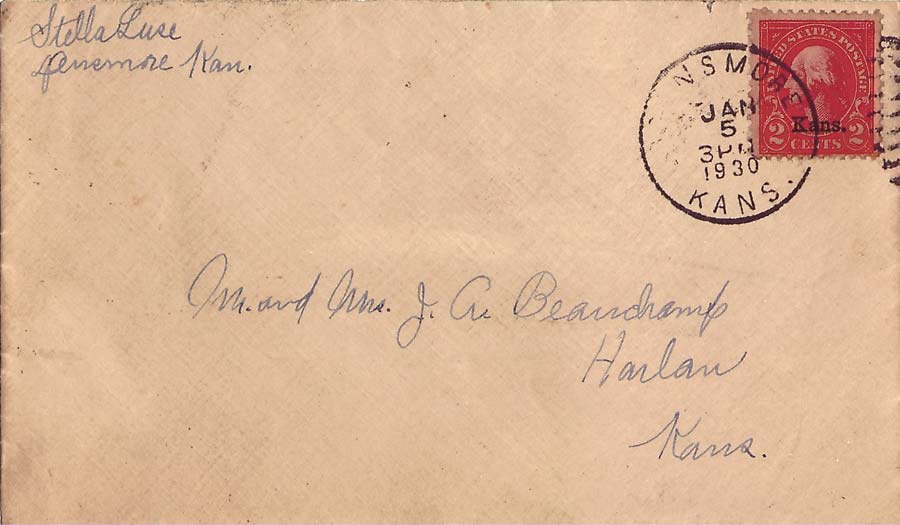 Stella Luse
Densmore Kan.
NSMORE
JAN
5
3PM
1930
KANS.
UNITED STATES POSTAGE
Kans.
2 CENTS 2
M. and Mrs. J. A. Beauchamp
Harlan
Kans.